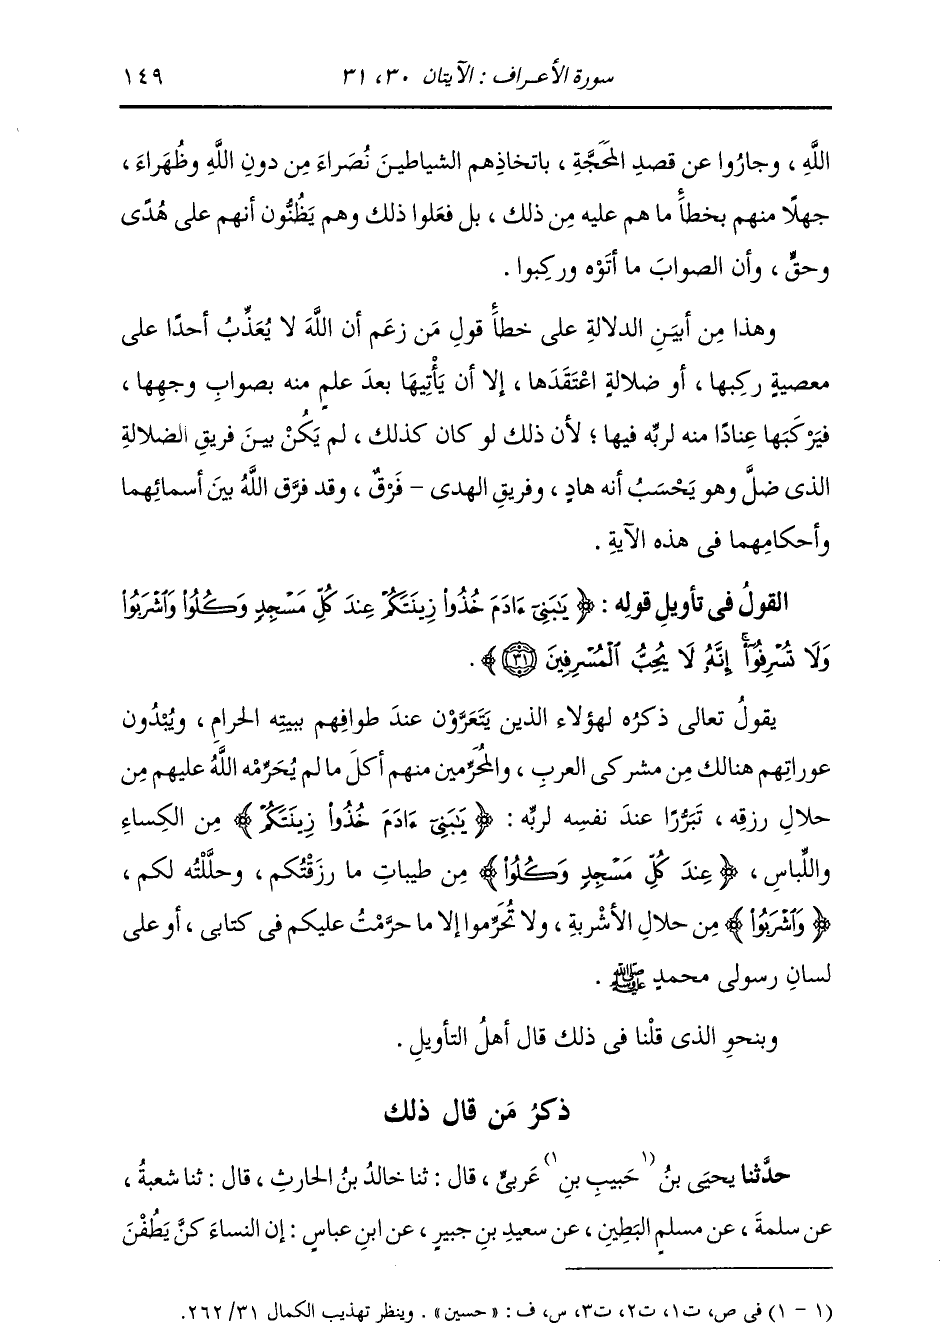 سورة الأعراف : الآيتان ٣٠، ٣١ ١٤٩
اللَّهِ ، وجارُوا عن قصدِ المَحَجَّةِ ، باتخاذِهم الشياطينَ نُصَراءَ مِن دونِ اللَّهِ وظُهَراءَ ،
جهلًا منهم بخطأِ ما هم عليه مِن ذلك ، بل فعَلوا ذلك وهم يَظُنُّون أنهم على هُدًى
وحقٍّ ، وأن الصوابَ ما أتَوْه وركِبوا .
وهذا مِن أبيَنِ الدلالةِ على خطأِ قولِ مَن زعَم أن اللَّهَ لا يُعَذِّبُ أحدًا على
معصيةٍ ركِبها ، أو ضلالةٍ اعْتَقَدَها ، إلا أن يَأْتِيَهَا بعدَ علمٍ منه بصوابِ وجهِها ،
فيَرْكَبَها عِنادًا منه لربِّه فيها ؛ لأن ذلك لو كان كذلك ، لم يَكُنْ بينَ فريقِ الضلالةِ
الذى ضلَّ وهو يَحْسَبُ أنه هادٍ ، وفريقِ الهدى – فَرْقٌ ، وقد فرَّق اللَّهُ بينَ أسمائِهما
وأحكامِهما فى هذه الآيةِ .
القولُ فى تأويلِ قولِه : ﴿ يَٰبَنِىٓ ءَادَمَ خُذُوا۟ زِينَتَكُمْ عِندَ كُلِّ مَسْجِدٍ وَكُلُوا۟ وَٱشْرَبُوا۟
وَلَا تُسْرِفُوٓا۟ ۚ إِنَّهُۥ لَا يُحِبُّ ٱلْمُسْرِفِينَ ٣١ ﴾ .
يقولُ تعالى ذكرُه لهؤلاء الذين يَتَعَرَّوْن عندَ طوافِهم ببيتِه الحرامِ ، ويُبْدُون
عوراتِهم هنالك مِن مشركى العربِ ، والمُحَرِّمين منهم أكلَ ما لم يُحَرِّمْه اللَّهُ عليهم مِن
حلالِ رزقِه ، تَبَرُّرًا عندَ نفسِه لربِّه : ﴿ يَٰبَنِىٓ ءَادَمَ خُذُوا۟ زِينَتَكُمْ ﴾ مِن الكِساءِ
واللِّباسِ ، ﴿ عِندَ كُلِّ مَسْجِدٍ وَكُلُوا۟ ﴾ مِن طيباتِ ما رزَقْتُكم ، وحلَّلْتُه لكم ،
﴿ وَٱشْرَبُوا۟ ﴾ مِن حلالِ الأشْربةِ ، ولا تُحَرِّموا إلا ما حرَّمْتُ عليكم فى كتابى ، أو على
لسانِ رسولى محمدٍ ﷺ .
وبنحوِ الذى قلْنا فى ذلك قال أهلُ التأويلِ .
ذكرُ مَن قال ذلك
حدَّثنا يحيَى بنُ (١حَبيبِ بنِ١) عَربىٍّ ، قال : ثنا خالدُ بنُ الحارثِ ، قال : ثنا شعبةُ ،
عن سلمةَ ، عن مسلمٍ البَطِينِ ، عن سعيدِ بنِ جبيرٍ ، عن ابنِ عباسٍ : إن النساءَ كنَّ يَطُفْنَ
(١ - ١) فى ص، ت١، ت٢، ت٣، س، ف : «حسين» . وينظر تهذيب الكمال ٣١/ ٢٦٢.